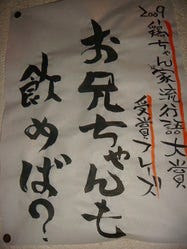 2009
鶏ちゃん家流行語大賞
受賞フレーズ
お兄ちゃんも
飲めば？